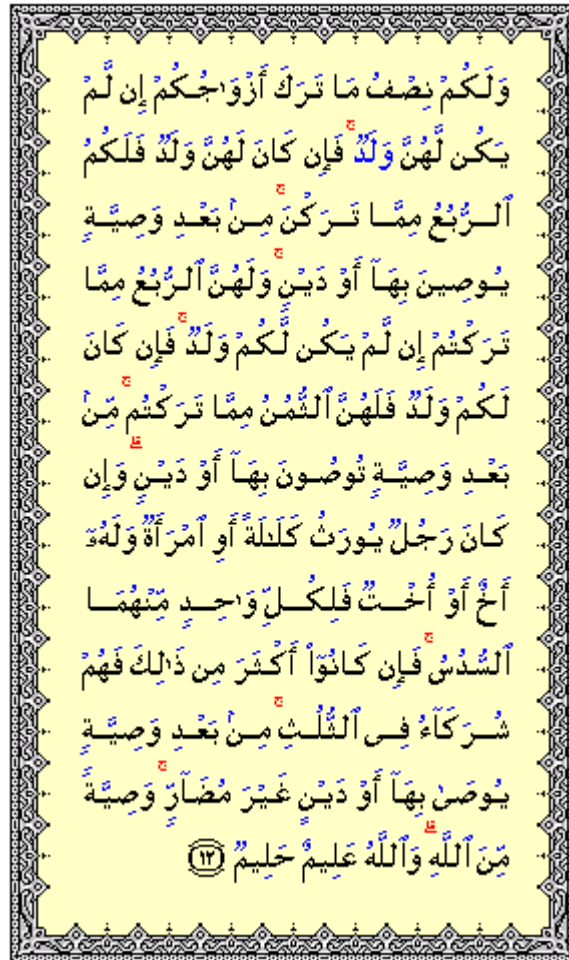 وَلَكُمْ نِصْفُ مَا تَرَكَ أَزْوَٰجُكُمْ إِن لَّمْ
يَكُن لَّهُنَّ وَلَدٌ ۚ فَإِن كَانَ لَهُنَّ وَلَدٌ فَلَكُمُ
ٱلرُّبُعُ مِمَّا تَرَكْنَ ۚ مِنۢ بَعْدِ وَصِيَّةٍ
يُوصِينَ بِهَآ أَوْ دَيْنٍ ۚ وَلَهُنَّ ٱلرُّبُعُ مِمَّا
تَرَكْتُمْ إِن لَّمْ يَكُن لَّكُمْ وَلَدٌ ۚ فَإِن كَانَ
لَكُمْ وَلَدٌ فَلَهُنَّ ٱلثُّمُنُ مِمَّا تَرَكْتُم ۚ مِّنۢ
بَعْدِ وَصِيَّةٍ تُوصُونَ بِهَآ أَوْ دَيْنٍ ۗ وَإِن
كَانَ رَجُلٌ يُورَثُ كَلَٰلَةً أَوِ ٱمْرَأَةٌ وَلَهُۥٓ
أَخٌ أَوْ أُخْتٌ فَلِكُلِّ وَٰحِدٍ مِّنْهُمَا
ٱلسُّدُسُ ۚ فَإِن كَانُوٓا۟ أَكْثَرَ مِن ذَٰلِكَ فَهُمْ
شُرَكَآءُ فِى ٱلثُّلُثِ ۚ مِنۢ بَعْدِ وَصِيَّةٍ
يُوصَىٰ بِهَآ أَوْ دَيْنٍ غَيْرَ مُضَآرٍّ ۚ وَصِيَّةً
مِّنَ ٱللَّهِ ۗ وَٱللَّهُ عَلِيمٌ حَلِيمٌ ١٢